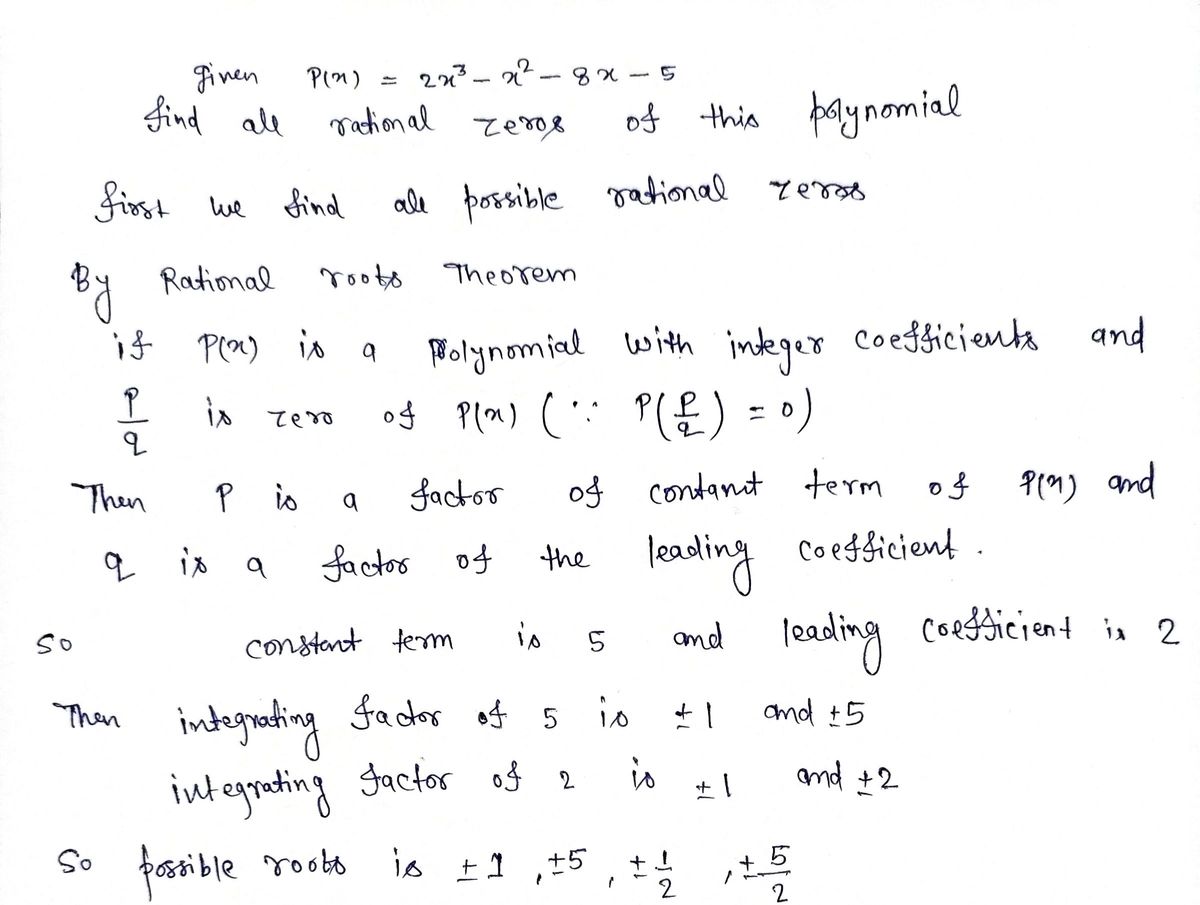 Given P(x) = 2x³ - x² - 8x - 5
find all rational zeros of this polynomial
first we find all possible rational zeros
By Rational roots Theorem
if P(x) is a Polynomial with integer coefficients and
P/q is zero of P(x) (∵ P(P/q) = 0)
Then P is a factor of contanst term of P(x) and
q is a factor of the leading coefficient.
So constant term is 5 and leading coefficient is 2
Then integrating factor of 5 is ±1 and ±5
integrating factor of 2 is ±1 and ±2
So possible roots is ±1, ±5, ±1/2, ±5/2